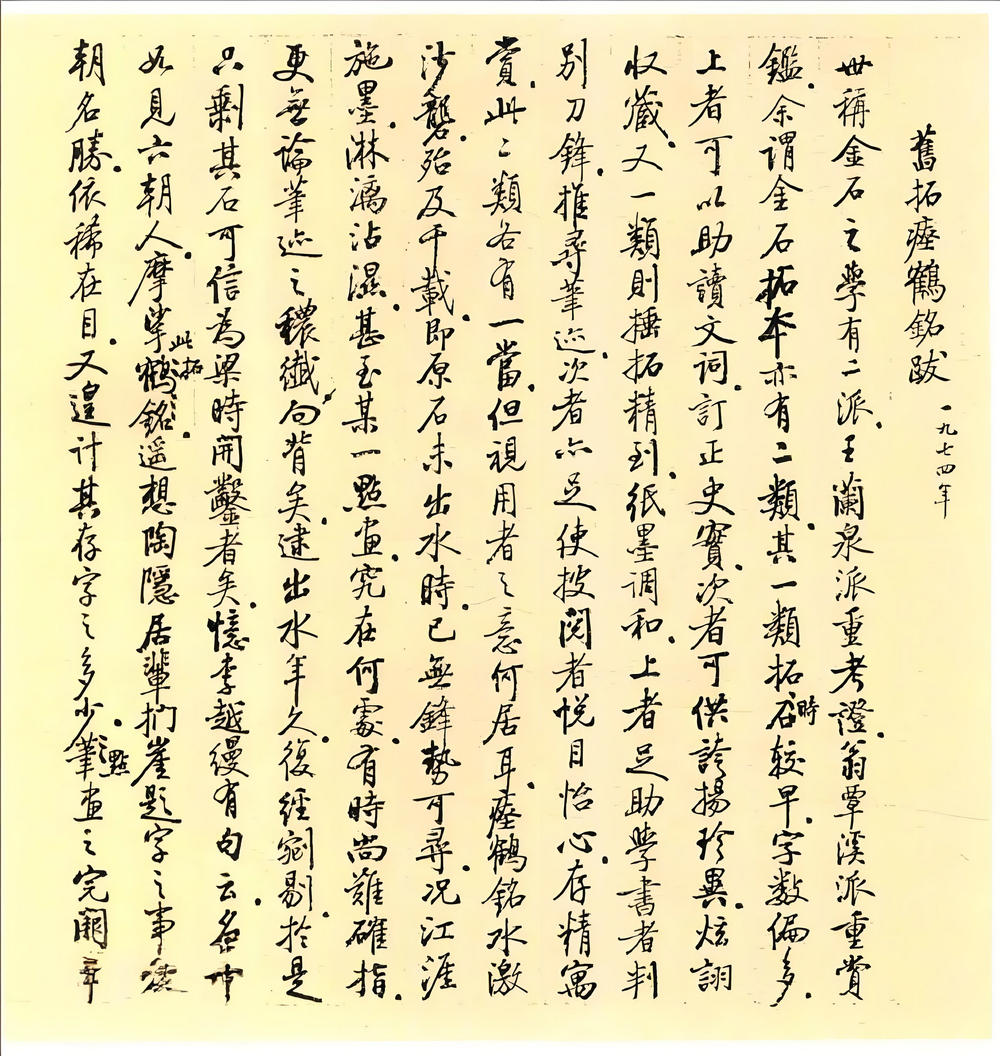 舊拓瘞鶴銘跋 一九七四年
世稱金石之學有二派、王蘭泉派重考證、翁覃溪派重賞
鑑。余謂金石拓本亦有二類。其一類拓石時較早、字數偏多。
上者可以助讀文詞、訂正史實、次者可供誇揚珍異、炫詡
收藏。又一類則捶拓精到、紙墨調和、上者足助學書者判
別刀鋒、推尋筆迹、次者亦足使披閱者悅目怡心、存精寓
賞。此二類各有一當、但視用者之意何居耳。瘞鶴銘水激
沙礱、殆及千載、即原石未出水時、已無鋒勢可尋。况江涯
施墨、淋漓沾濕、甚至某一點畫、究在何處、有時尚難確指。
更無論筆迹之穠纖向背矣。逮出水年久、復經剜剔、於是
只剩其石可信為梁時開鑿者矣。憶李越縵有句云、
如見六朝人。摩挲此拓鶴銘、遥想陶隱居輩捫崖題字之事
朝名勝、依稀在目。又遑計其存字之多少、筆畫之完闕